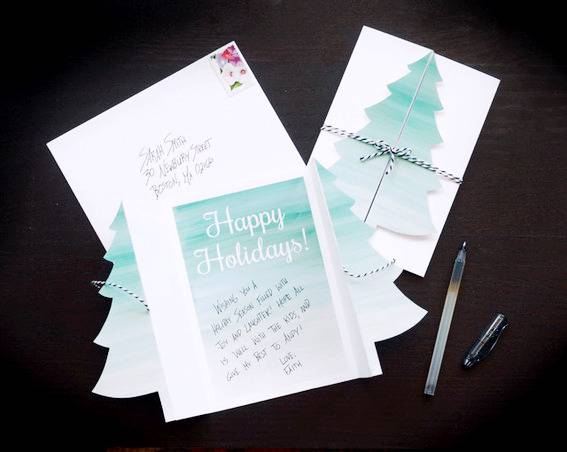 SARAH SMITH
30 NEWBURY STREET
BOSTON, MA 02150
Happy
Holidays!
WISHING YOU A
HOLIDAY SEASON FILLED WITH
JOY AND LAUGHTER! HOPE ALL
IS WELL WITH THE KIDS, AND
GIVE MY BEST TO ANDY!
LOVE,
FAITH